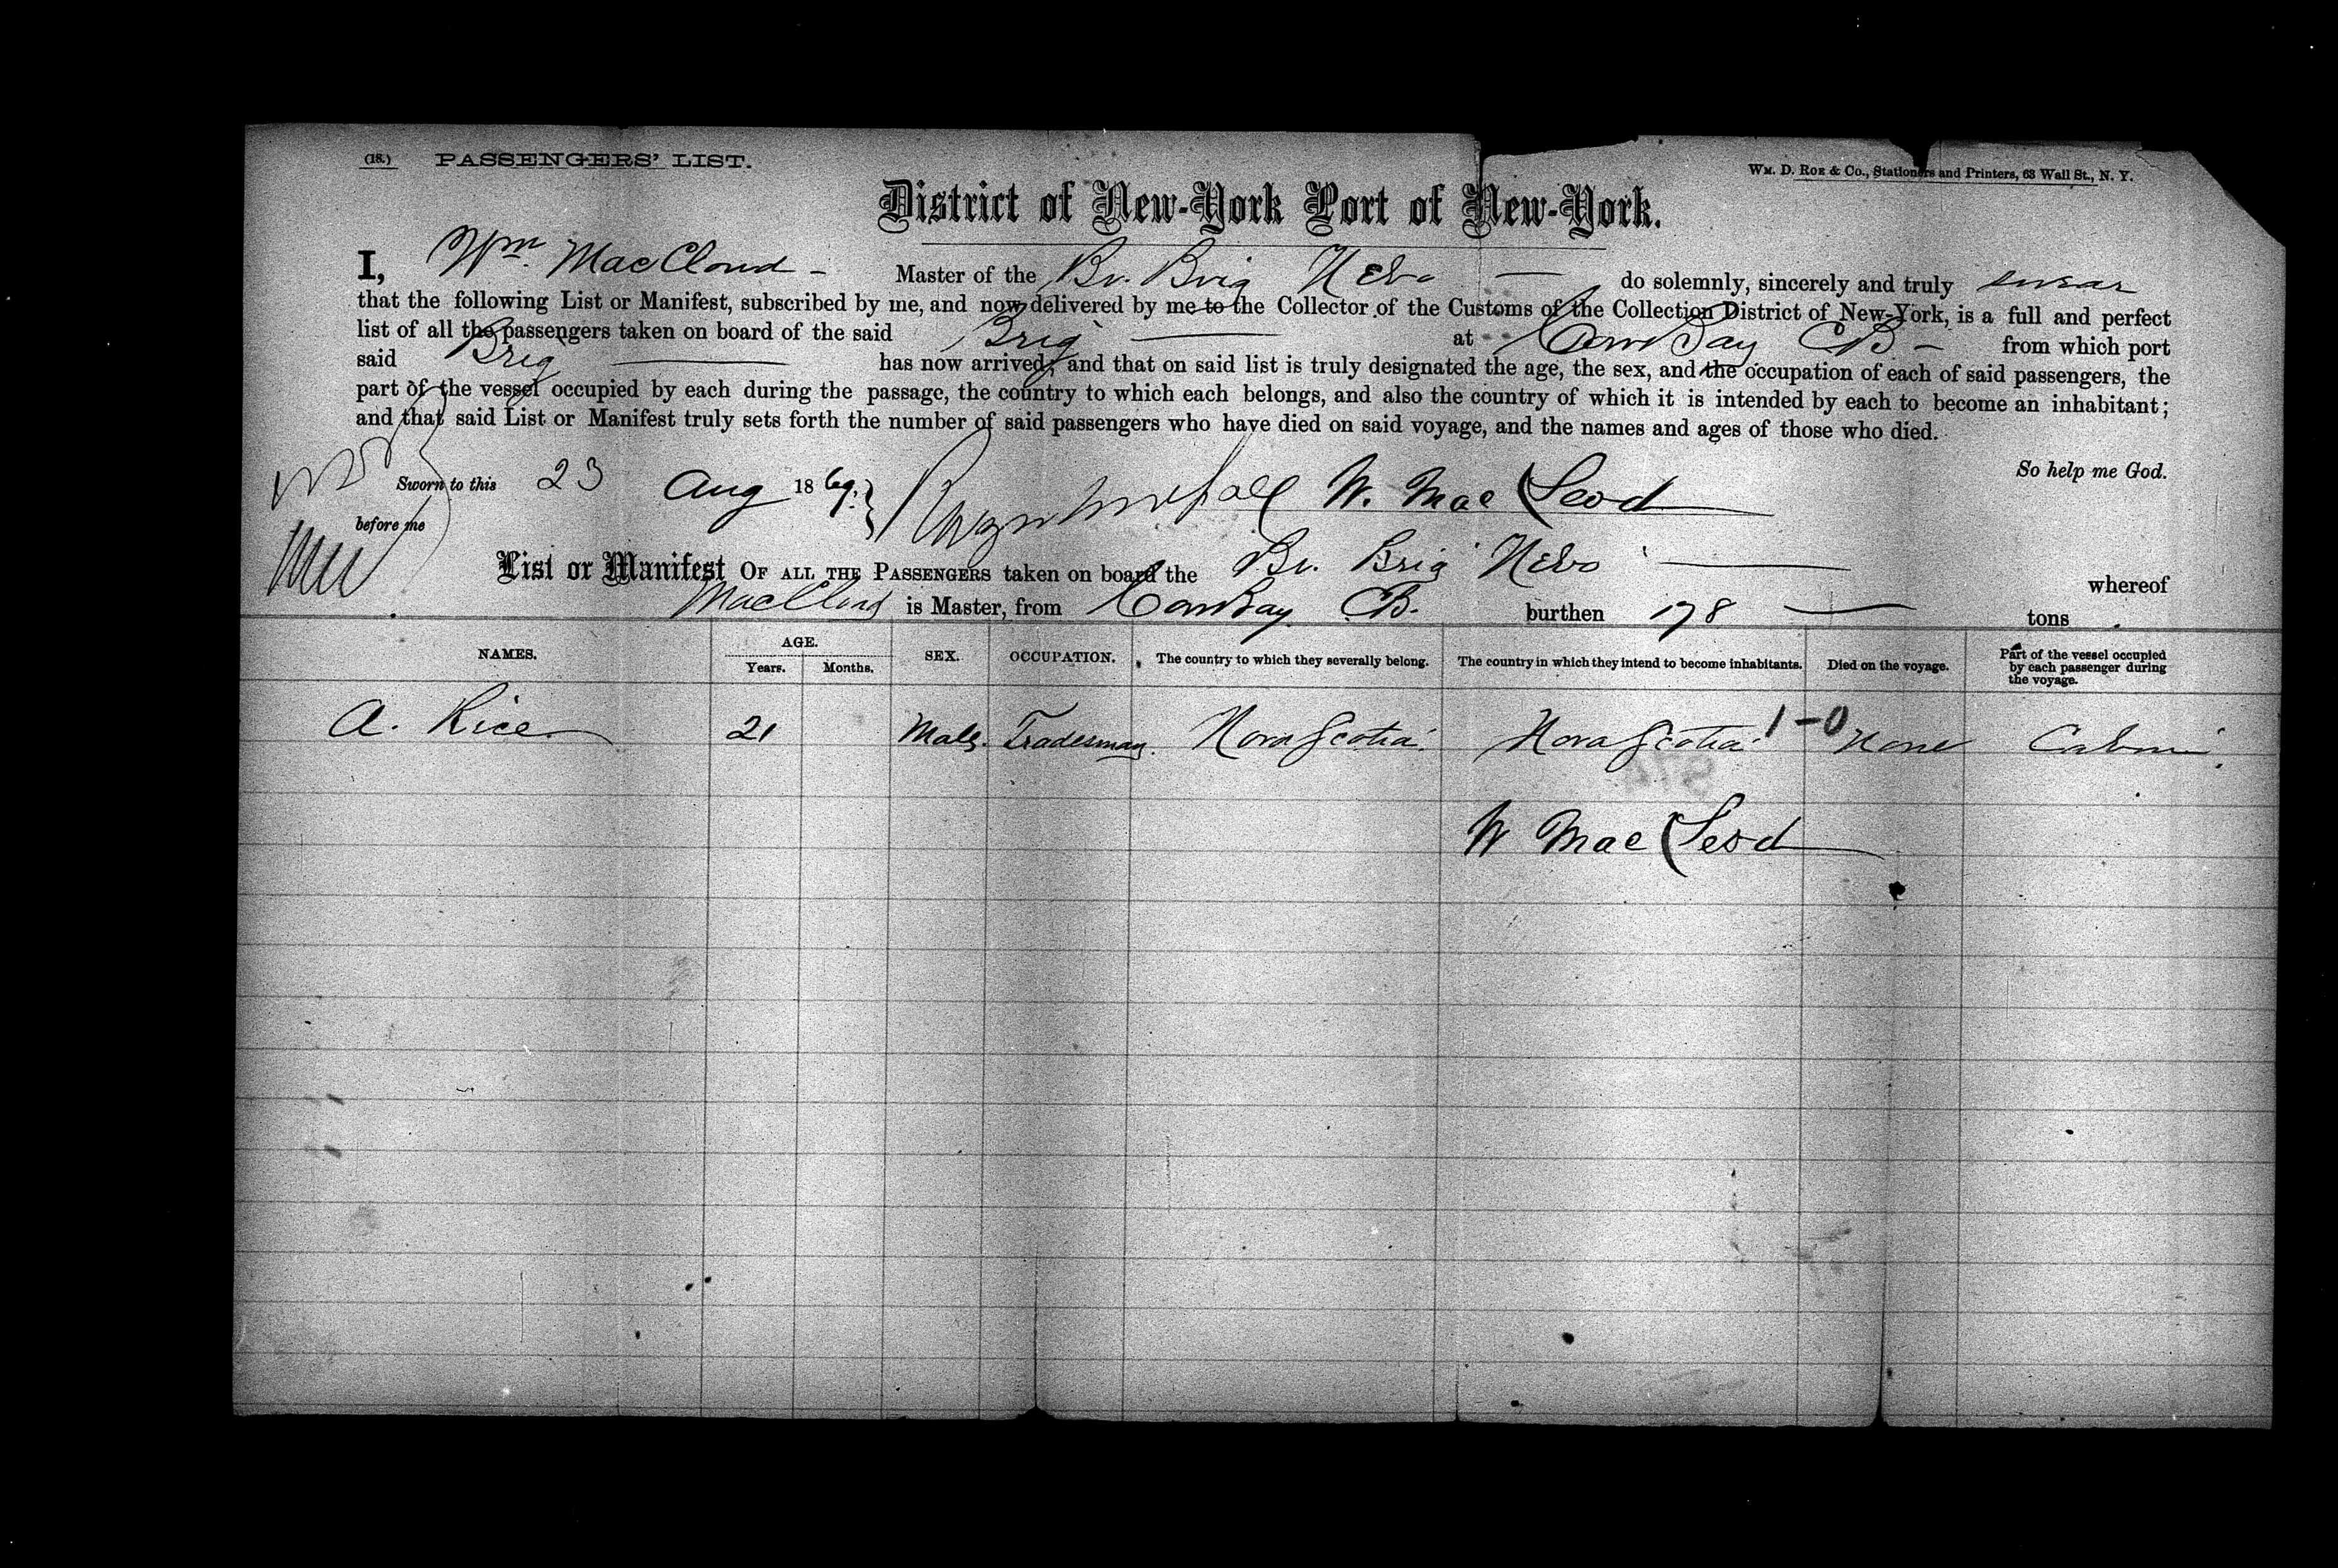 (18.) PASSENGERS' LIST.
WM. D. ROE & CO., Stationers and Printers, 63 Wall St., N. Y.
District of New-York Port of New-York.
I, Wm. MacCloud - Master of the Br. Brig Nebo — do solemnly, sincerely and truly swear
that the following List or Manifest, subscribed by me, and now delivered by me to the Collector of the Customs of the Collection District of New-York, is a full and perfect
list of all the passengers taken on board of the said Brig — at Cow Bay CB - from which port
said Brig — has now arrived; and that on said list is truly designated the age, the sex, and the occupation of each of said passengers, the
part of the vessel occupied by each during the passage, the country to which each belongs, and also the country of which it is intended by each to become an inhabitant;
and that said List or Manifest truly sets forth the number of said passengers who have died on said voyage, and the names and ages of those who died.
So help me God.
Sworn to this 23 Aug 1869. W. Mac Leod
before me
List or Manifest OF ALL THE PASSENGERS taken on board the Br. Brig Nebo — whereof
MacCloud is Master, from Cow Bay CB. burthen 178 — tons
NAMES. AGE. Years. Months. SEX. OCCUPATION. The country to which they severally belong. The country in which they intend to become inhabitants. Died on the voyage. Part of the vessel occupied by each passenger during the voyage.
A. Rice 21 Male. Tradesman. Nova Scotia. Nova Scotia. 1-0 None Cabin.
W Mac Leod